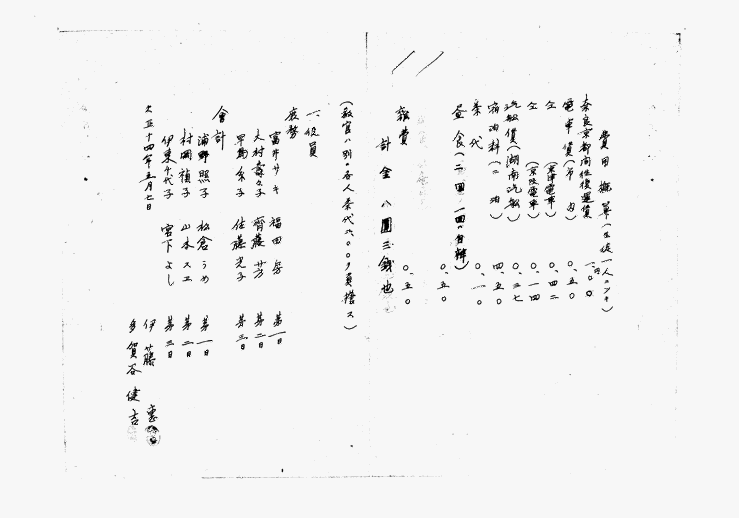 費用概算(生徒一人ニツキ)
奈良京都間往復運賃 一円〇〇
電車賃(市内) 〇、五〇
仝(京津電車) 〇、四二
仝(京阪電車) 〇、一四
汽船賃(湖南汽船) 〇、三七
宿泊料(二泊) 四、五〇
茶代 〇、一〇
昼食(二回 一回ハ自辨) 〇、五〇
雑費 〇、五〇
計金八圓三銭也
(教官ハ別ニ各人茶代六、〇〇ヲ負擔ス)
一、役員
庶務
富井サキ 福田 第一日
大村 齊藤芳 第二日
早島糸子 佐藤光子 第三日
會計
浦野照子 松倉うめ 第一日
村岡禎子 山本スエ 第二日
伊東千代子 宮下よし 第三日
大正十四年五月七日
伊藤恵
多賀谷健吉